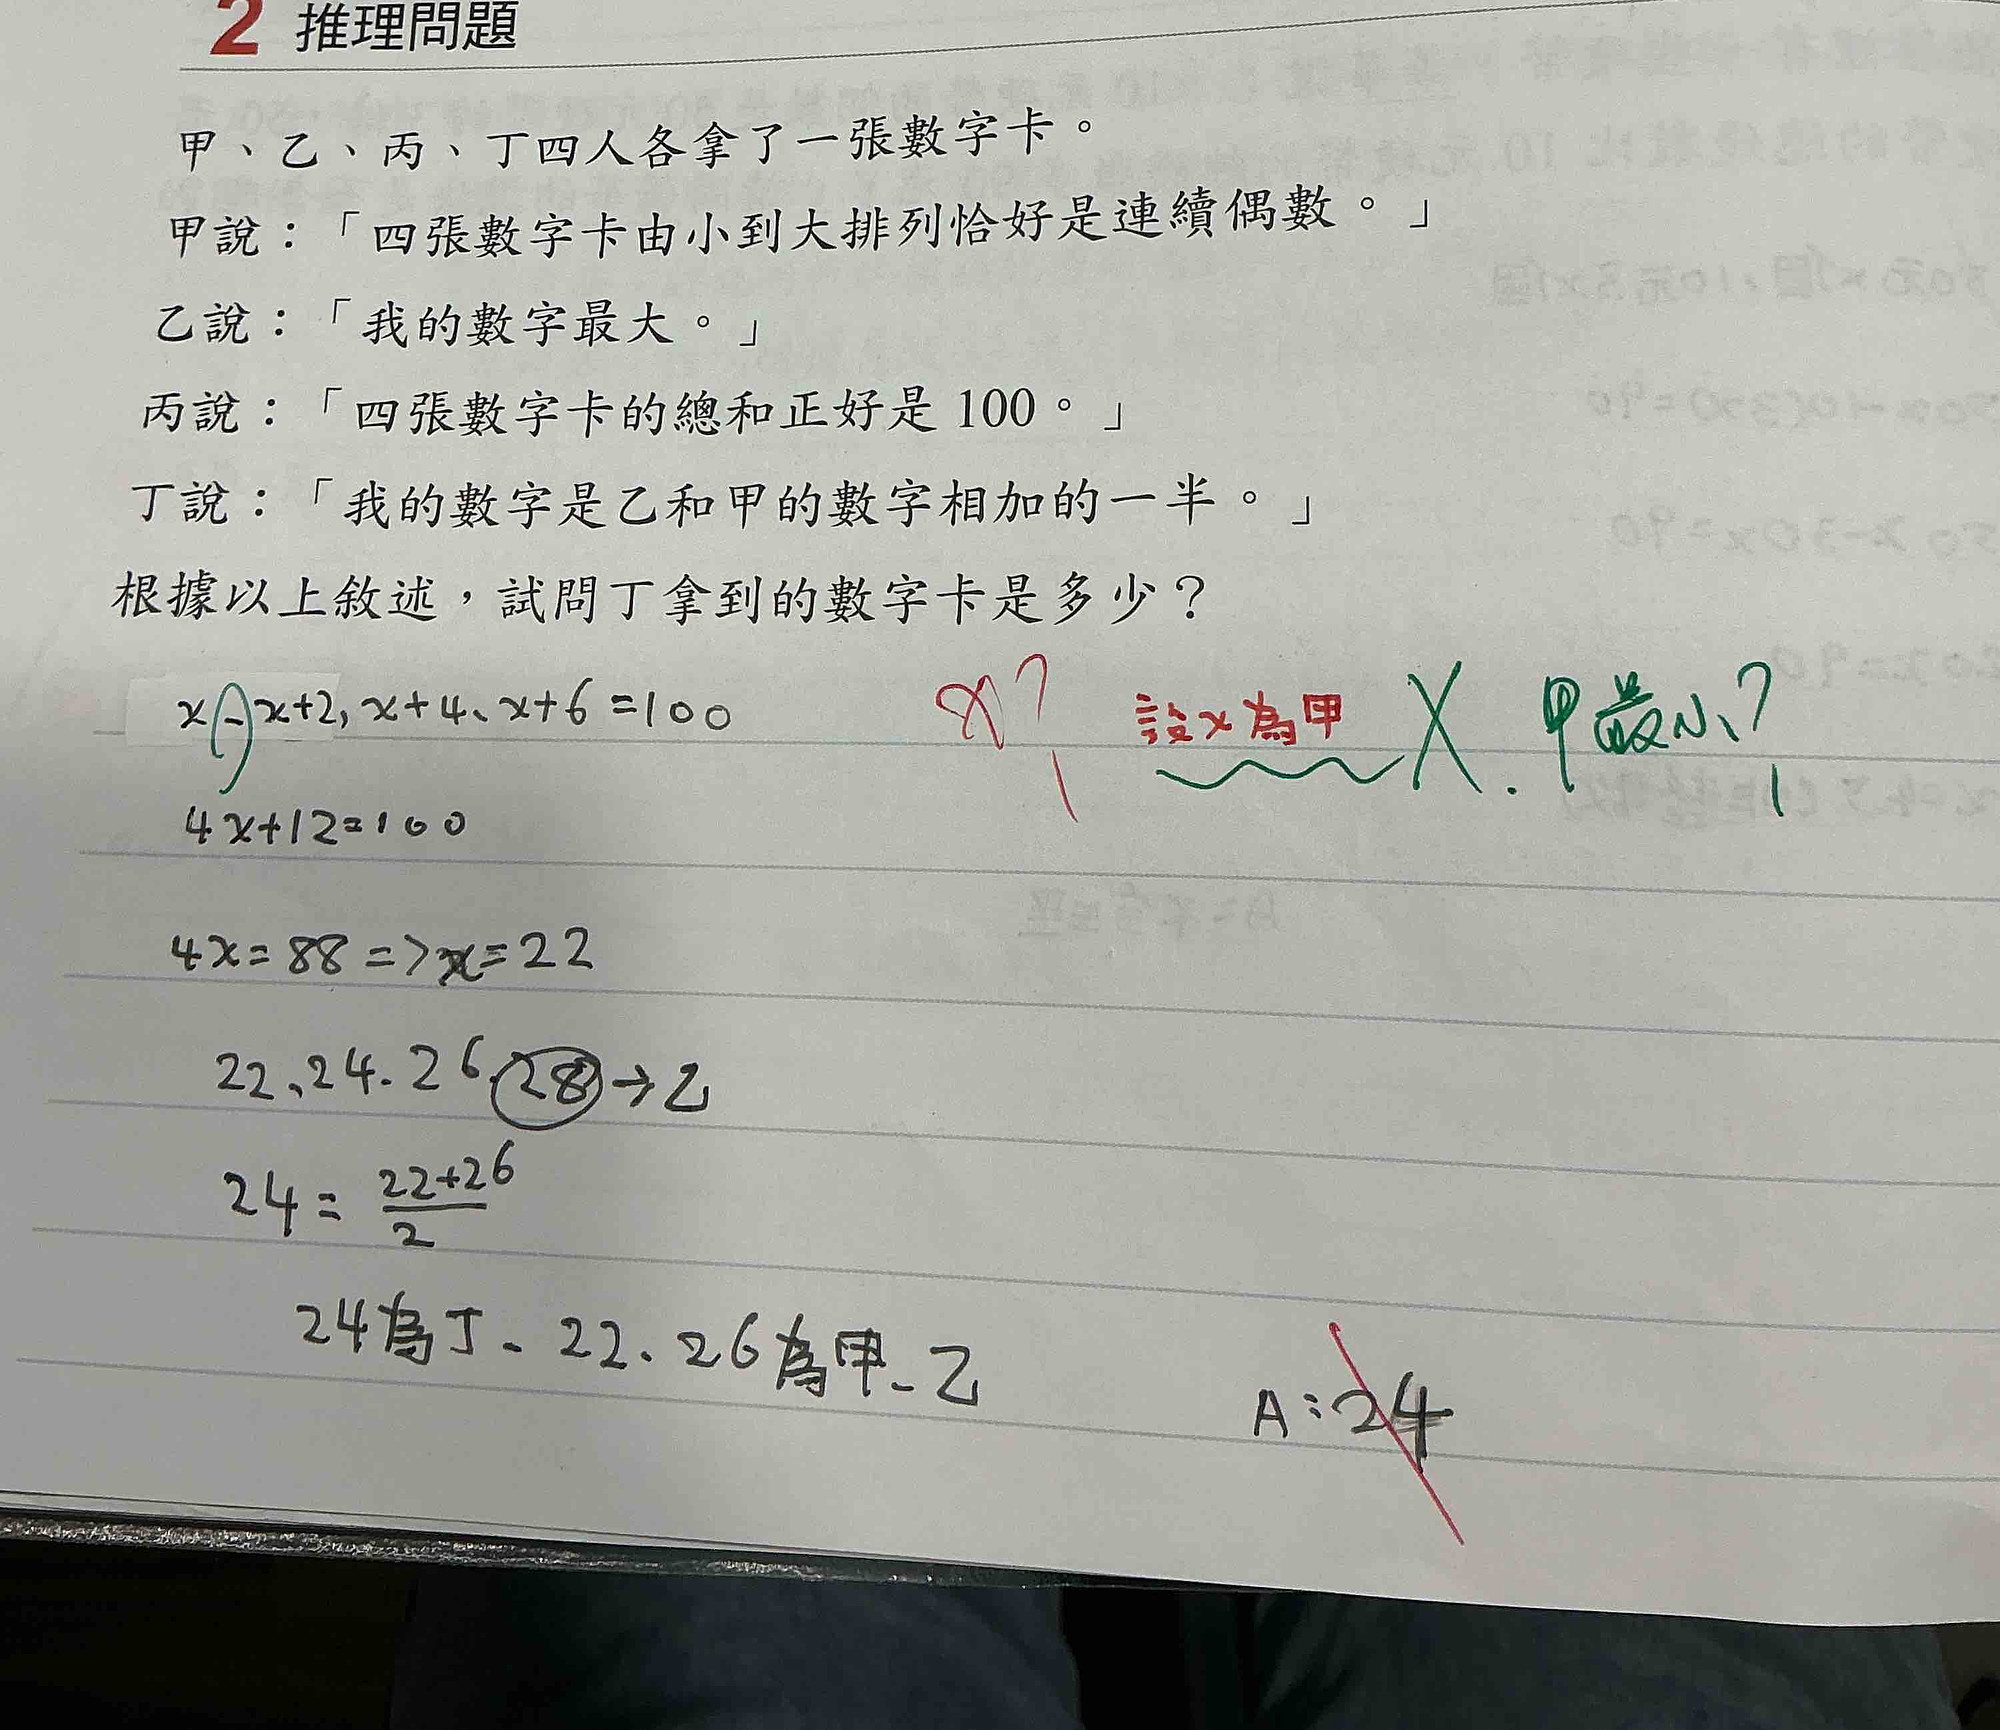 2 推理問題
甲、乙、丙、丁四人各拿了一張數字卡。
甲說：「四張數字卡由小到大排列恰好是連續偶數。」
乙說：「我的數字最大。」
丙說：「四張數字卡的總和正好是 100。」
丁說：「我的數字是乙和甲的數字相加的一半。」
根據以上敘述，試問丁拿到的數字卡是多少？
x、x+2, x+4、x+6=100 x? 設x為甲 X. 甲最小?
4x+12=100
4x=88=>x=22
22、24.26.28→乙
24=22+26/2
24為丁、22、26為甲、乙
A:24